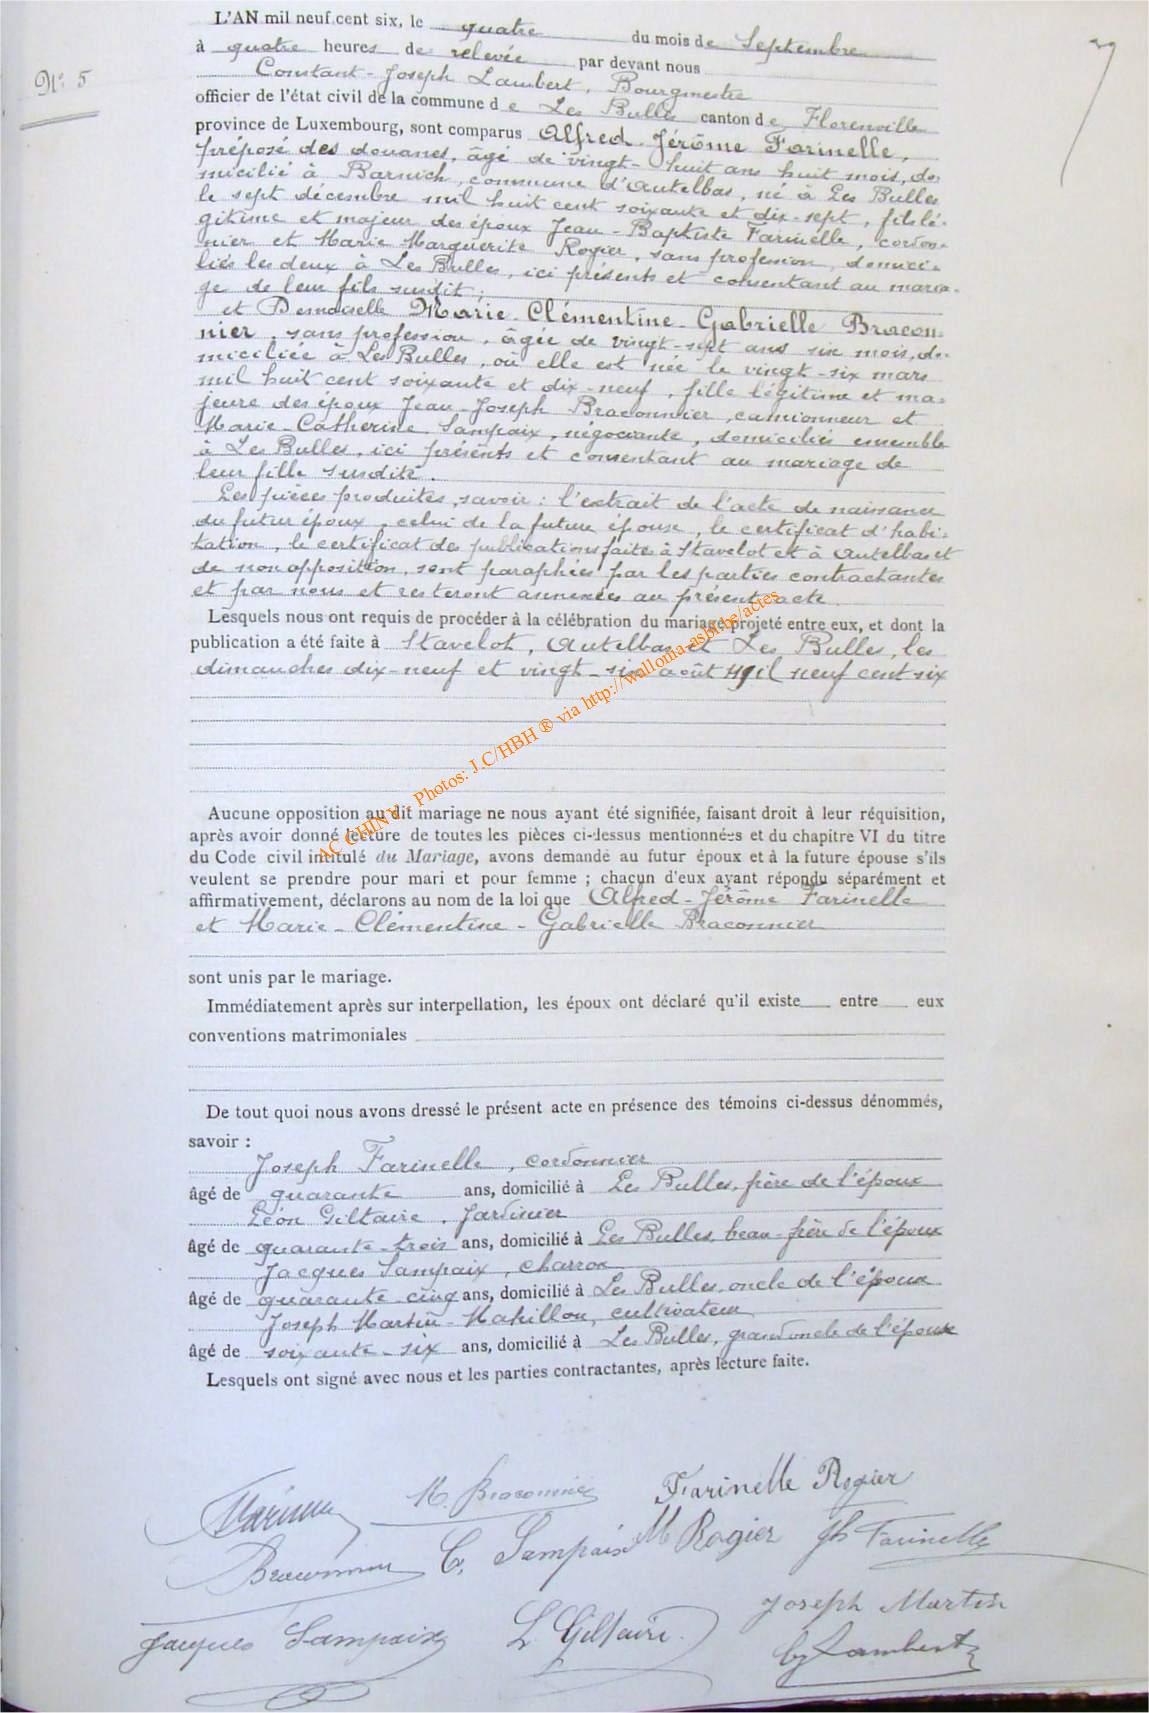 N° 5
L'AN mil neuf cent six, le quatre du mois de Septembre
à quatre heures de relevée par devant nous
Constant-Joseph Lambert, Bourgmestre
officier de l'état civil de la commune de Les Bulles canton de Florenville
province de Luxembourg, sont comparus Alfred-Jérôme Farinelle,
préposé des douanes, âgé de vingt-huit ans huit mois, do-
micilié à Barnich, commune d'Autelbas, né à Les Bulles
le sept décembre mil huit cent soixante et dix-sept, fils lé-
gitime et majeur des époux Jean-Baptiste Farinelle, cordon-
nier et Marie Marguerite Rogier, sans profession, domici-
liés les deux à Les Bulles, ici présents et consentant au maria-
ge de leur fils susdit;
et Demoiselle Marie-Clémentine-Gabrielle Bracon-
nier, sans profession, âgée de vingt-sept ans six mois, do-
miciliée à Les Bulles, où elle est née le vingt-six mars
mil huit cent soixante et dix-neuf, fille légitime et ma-
jeure des époux Jean-Joseph Braconnier, camionneur et
Marie-Catherine Sampaix, négociante, domiciliés ensemble
à Les Bulles, ici présents et consentant au mariage de
leur fille susdite.
Les pièces produites, savoir: l'extrait de l'acte de naissance
du futur époux, celui de la future épouse, le certificat d'habi-
tation, le certificat des publications faites à Stavelot et à Autelbas et
de non opposition, sont paraphées par les parties contractantes
et par nous et resteront annexées au présent acte.
Lesquels nous ont requis de procéder à la célébration du mariage projeté entre eux, et dont la
publication a été faite à Stavelot, Autelbas et Les Bulles, les
dimanches dix-neuf et vingt-six août mil neuf cent six
AC CHINY - Photos: J.C/HBH ® via http://wallonia-asbl.be/actes
Aucune opposition au dit mariage ne nous ayant été signifiée, faisant droit à leur réquisition,
après avoir donné lecture de toutes les pièces ci-dessus mentionnées et du chapitre VI du titre
du Code civil intitulé du Mariage, avons demandé au futur époux et à la future épouse s'ils
veulent se prendre pour mari et pour femme ; chacun d'eux ayant répondu séparément et
affirmativement, déclarons au nom de la loi que Alfred-Jérôme Farinelle
et Marie-Clémentine-Gabrielle Braconnier
sont unis par le mariage.
Immédiatement après sur interpellation, les époux ont déclaré qu'il existe entre eux
conventions matrimoniales
De tout quoi nous avons dressé le présent acte en présence des témoins ci-dessus dénommés,
savoir :
Joseph Farinelle, cordonnier
âgé de quarante ans, domicilié à Les Bulles, frère de l'époux
Léon Giltaire, Jardinier
âgé de quarante-trois ans, domicilié à Les Bulles, beau-frère de l'époux
Jacques Sampaix, charron
âgé de quarante-cinq ans, domicilié à Les Bulles, oncle de l'épouse
Joseph Martin-Mahillon, cultivateur
âgé de soixante-six ans, domicilié à Les Bulles, grand oncle de l'épouse
Lesquels ont signé avec nous et les parties contractantes, après lecture faite.
M. Braconnier Farinelle Rogier
Braconnier C. Sampaix M Rogier Jh Farinelle
Jacques Sampaix L Giltaire Joseph Martin
Lambert